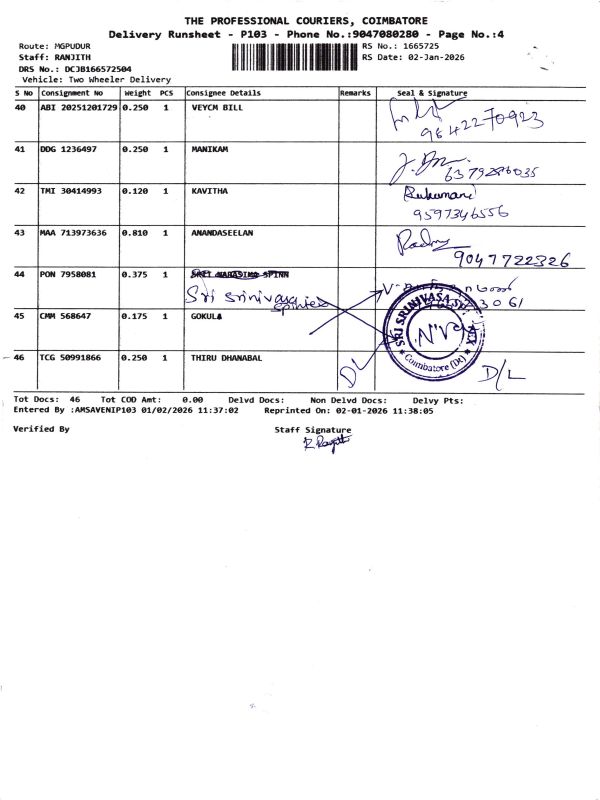 THE PROFESSIONAL COURIERS, COIMBATORE
Delivery Runsheet - P103 - Phone No.:9047080280 - Page No.:4
Route: MGPUDUR RS No.: 1665725
Staff: RANJITH RS Date: 02-Jan-2026
DRS No.: DCJB166572504
Vehicle: Two Wheeler Delivery
S No Consignment No Weight PCS Consignee Details Remarks Seal & Signature
40 ABI 20251201729 0.250 1 VEYCM BILL
9842270923
41 DDG 1236497 0.250 1 MANIKAM
6379286035
42 TMI 30414993 0.120 1 KAVITHA Rukumani
9597346556
43 MAA 713973636 0.810 1 ANANDASEELAN
9047722326
44 PON 7958081 0.375 1 SREE NARASIMA SPINN
Sri Srinivasa
3061
SRI SRINIVASA
Coimbatore (Dt)
45 CMM 568647 0.175 1 GOKULA
46 TCG 50991866 0.250 1 THIRU DHANABAL
DL
D/L
Tot Docs: 46 Tot COD Amt: 0.00 Delvd Docs: Non Delvd Docs: Delvy Pts:
Entered By :AMSAVENIP103 01/02/2026 11:37:02 Reprinted On: 02-01-2026 11:38:05
Verified By Staff Signature